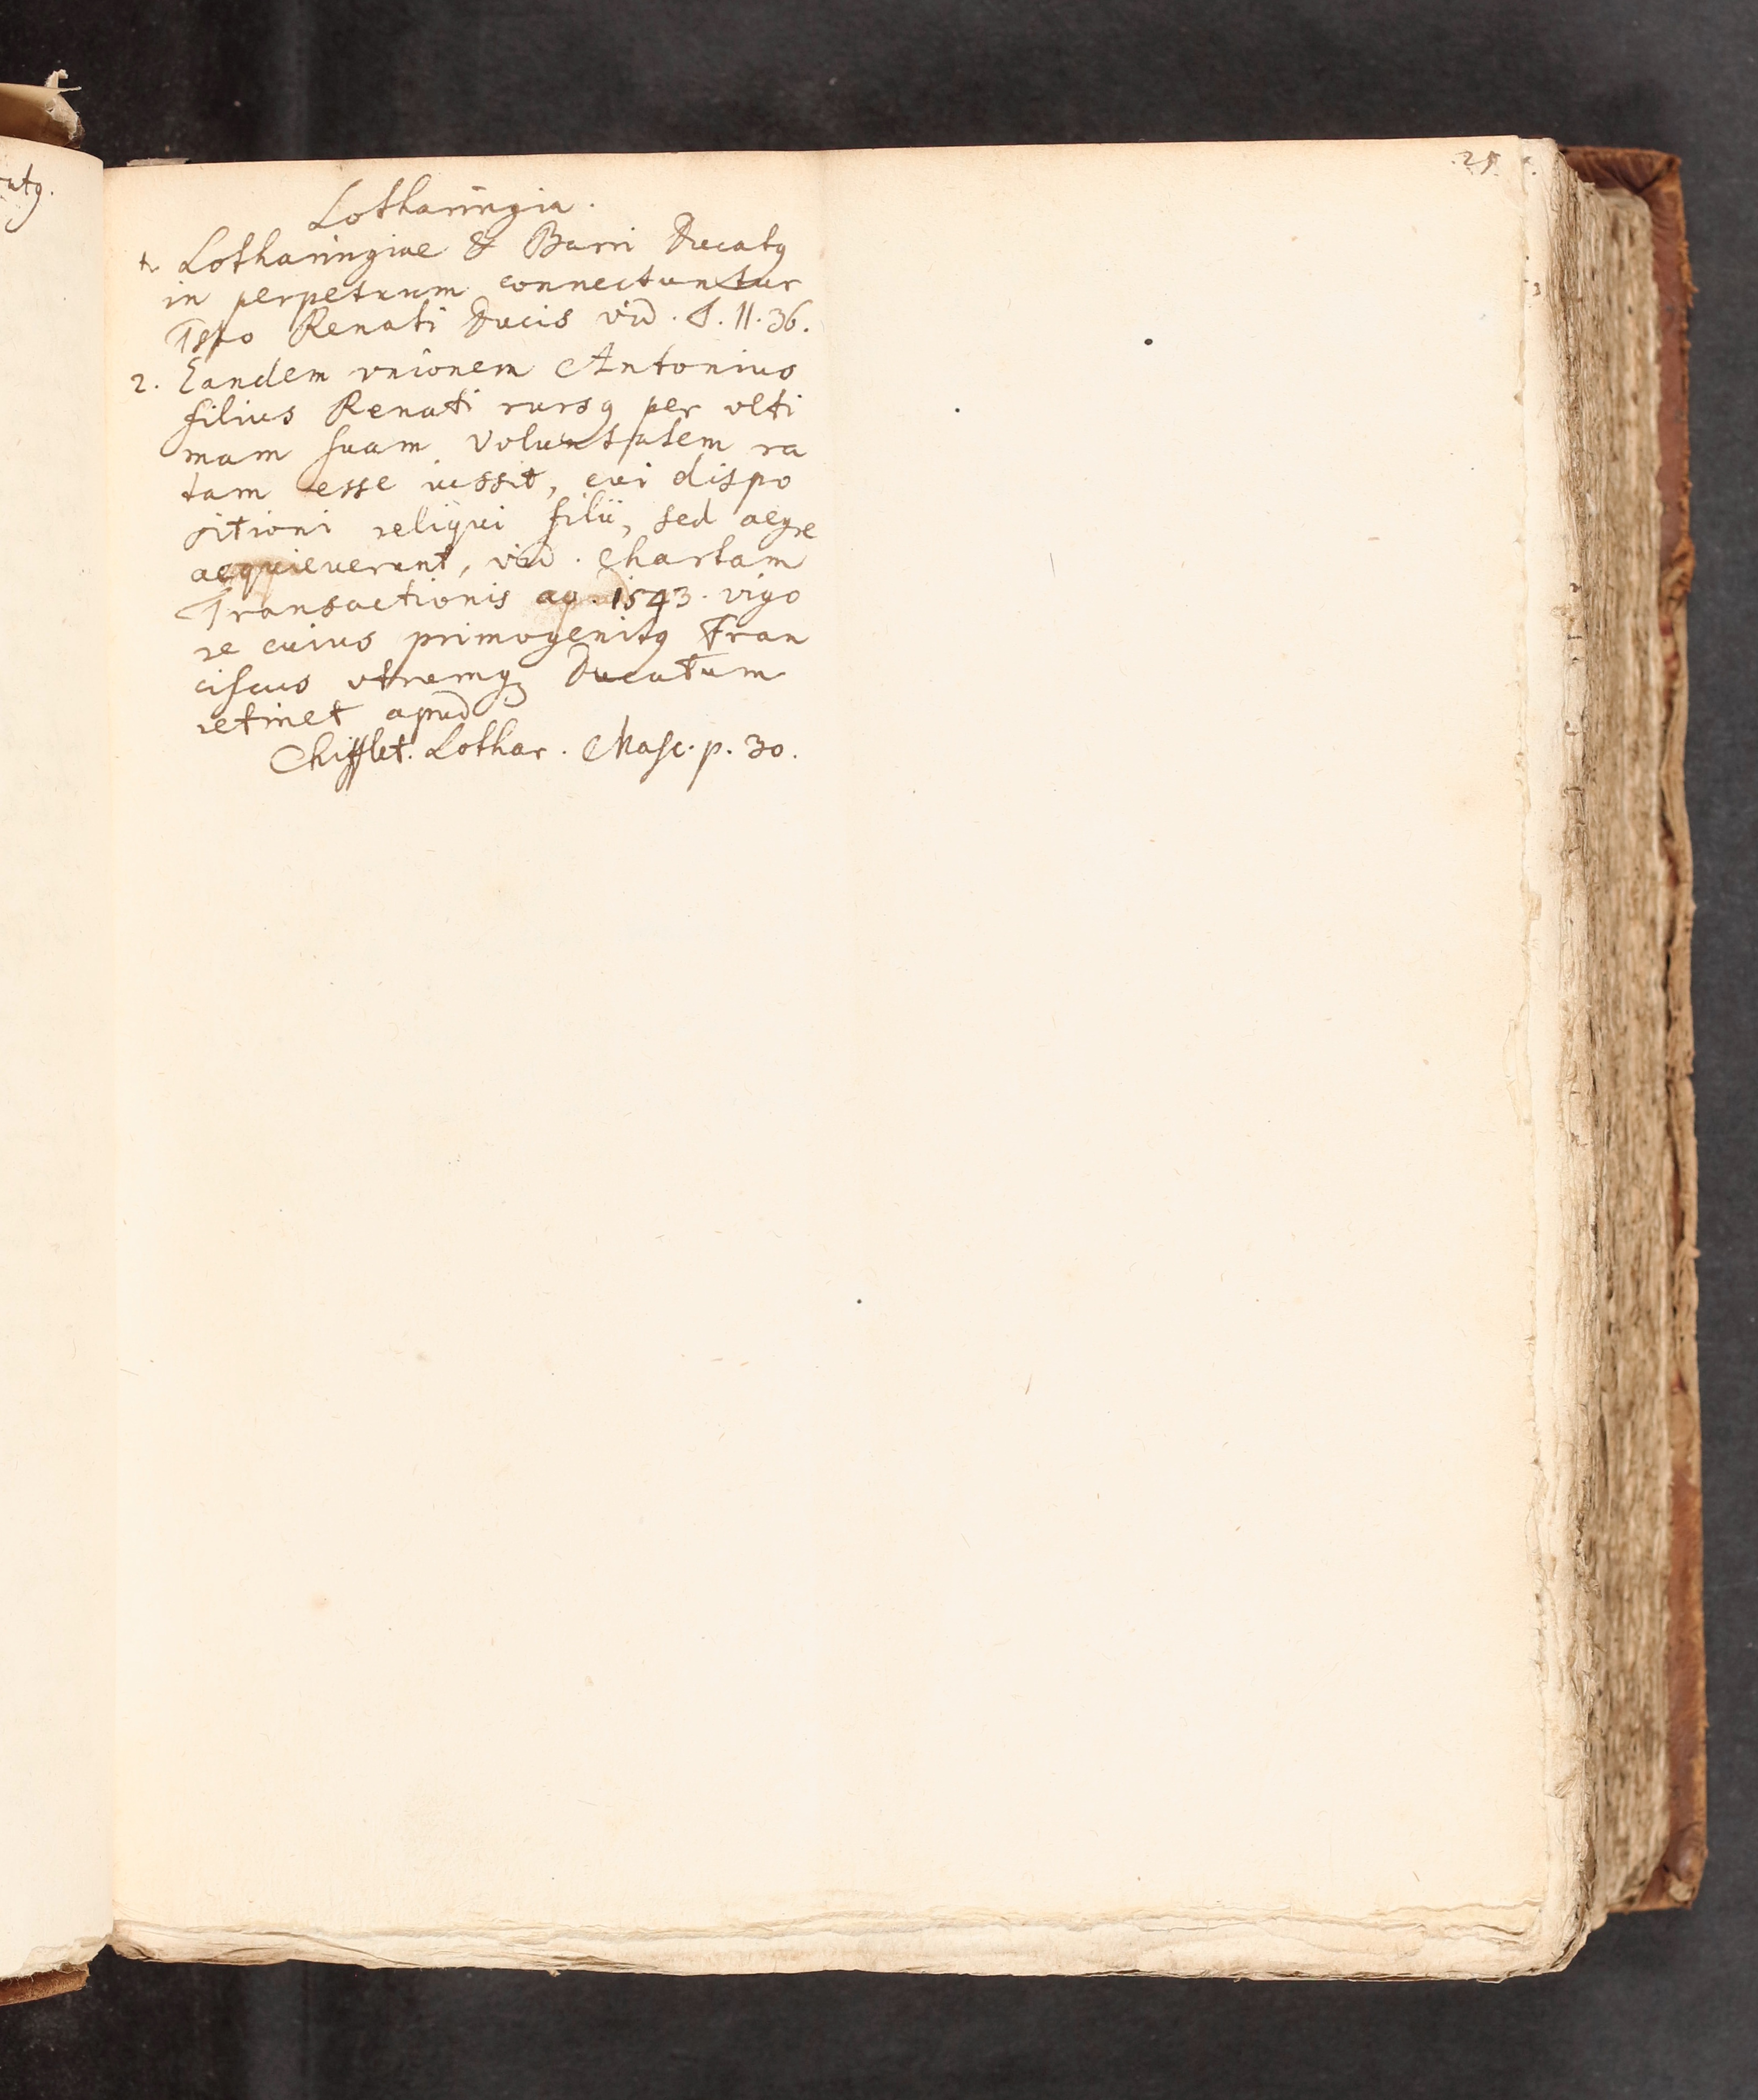 25
Lotharingia.
1. Lotharingiae & Barri Ducatq
in perpetuum connectuntur
Tsto Renati Ducis vid. T. II. 36.
2. Eandem vnionem Antonius
filius Renati rursq per vlti
mam suam Voluntatem ra
tam esse iussit, cui dispo
sitioni reliqui filii, sed aegre
acquieuerunt, vid. Chartam
Transactionis aq. 1543. vigo
re cuius primogenitq Fran
ciscus vtremq Ducatum
retinet apud
Chifflet. Lothar. Masc. p. 30.